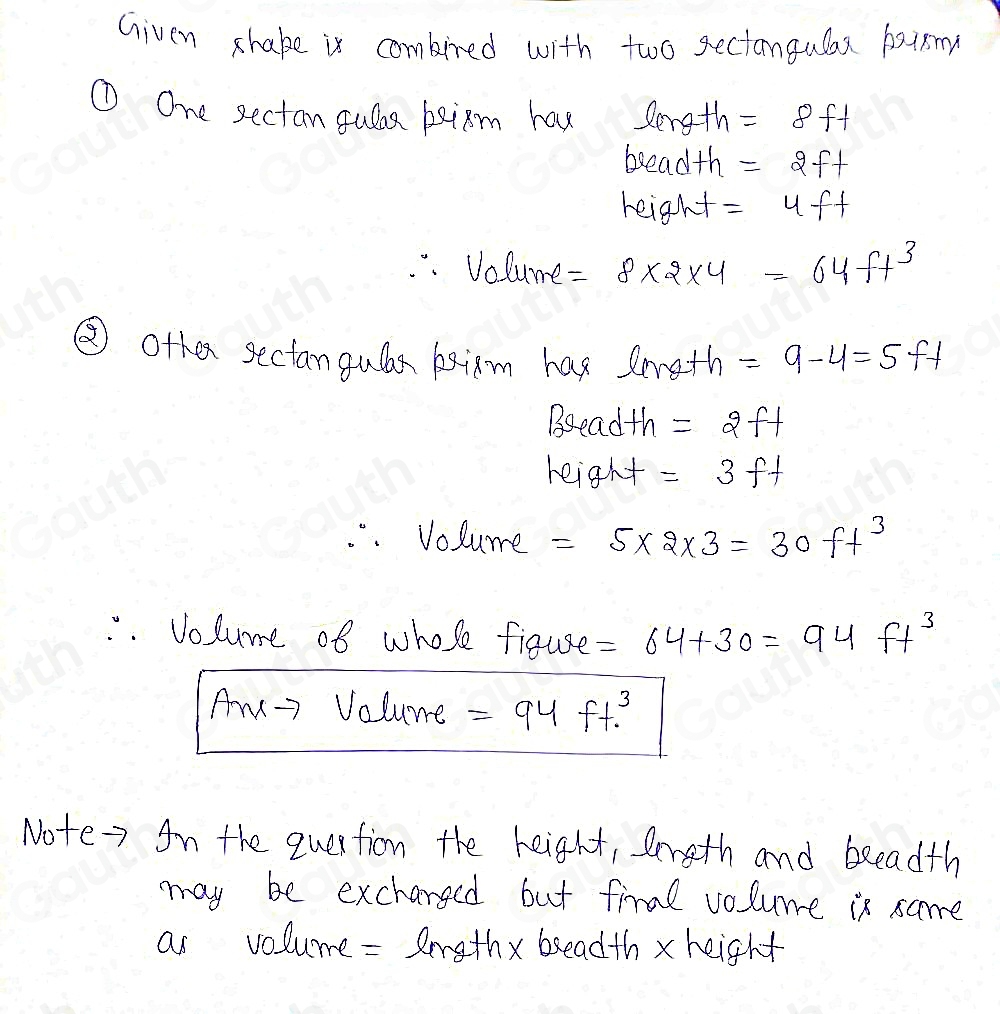 Given shape is combined with two rectangular prisms
① One rectangular prism has length = 8 ft
breadth = 2 ft
height = 4 ft
∴ Volume = 8×2×4 = 64 ft³
② Other rectangular prism has length = 9-4=5 ft
Breadth = 2 ft
height = 3 ft
∴ Volume = 5×2×3 = 30 ft³
∴ Volume of whole figure = 64+30 = 94 ft³
Ans → Volume = 94 ft.³
Note → In the question the height, length and breadth
may be exchanged but final volume is same
as volume = length × breadth × height
Gauth